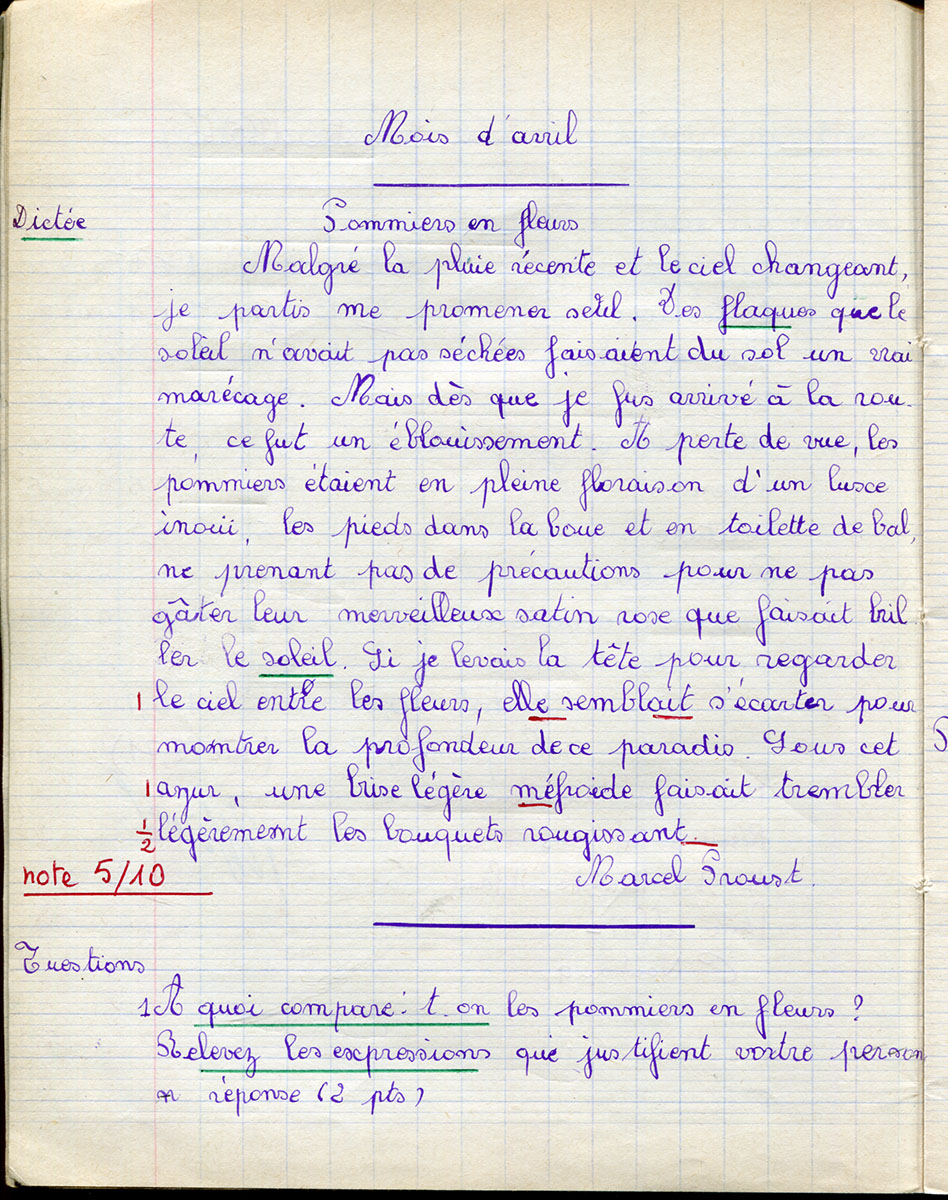 Mois d'avril
Dictée
Pommiers en fleurs
Malgré la pluie récente et le ciel changeant,
je partis me promener seul. Des flaques que le
soleil n'avait pas séchées faisaient du sol un vrai
marécage. Mais dès que je fus arrivé à la rou-
te, ce fut un éblouissement. A perte de vue, les
pommiers étaient en pleine floraison d'un lusce
inouii, les pieds dans la boue et en toilette de bal,
ne prenant pas de précautions pour ne pas
gâter leur merveilleux satin rose que faisait bril
ler le soleil. Si je levais la tête pour regarder
1 le ciel entre les fleurs, elle semblait s'écarter pour
montrer la profondeur de ce paradis. Sous cet
1 azur, une brise légère méfroide faisait trembler
1/2 légèrement les bouquets rougissant.
note 5/10
Marcel Proust.
Questions
1 A quoi compare-t-on les pommiers en fleurs ?
Relevez les expressions que justifient vortre person
réponse (2 pts)